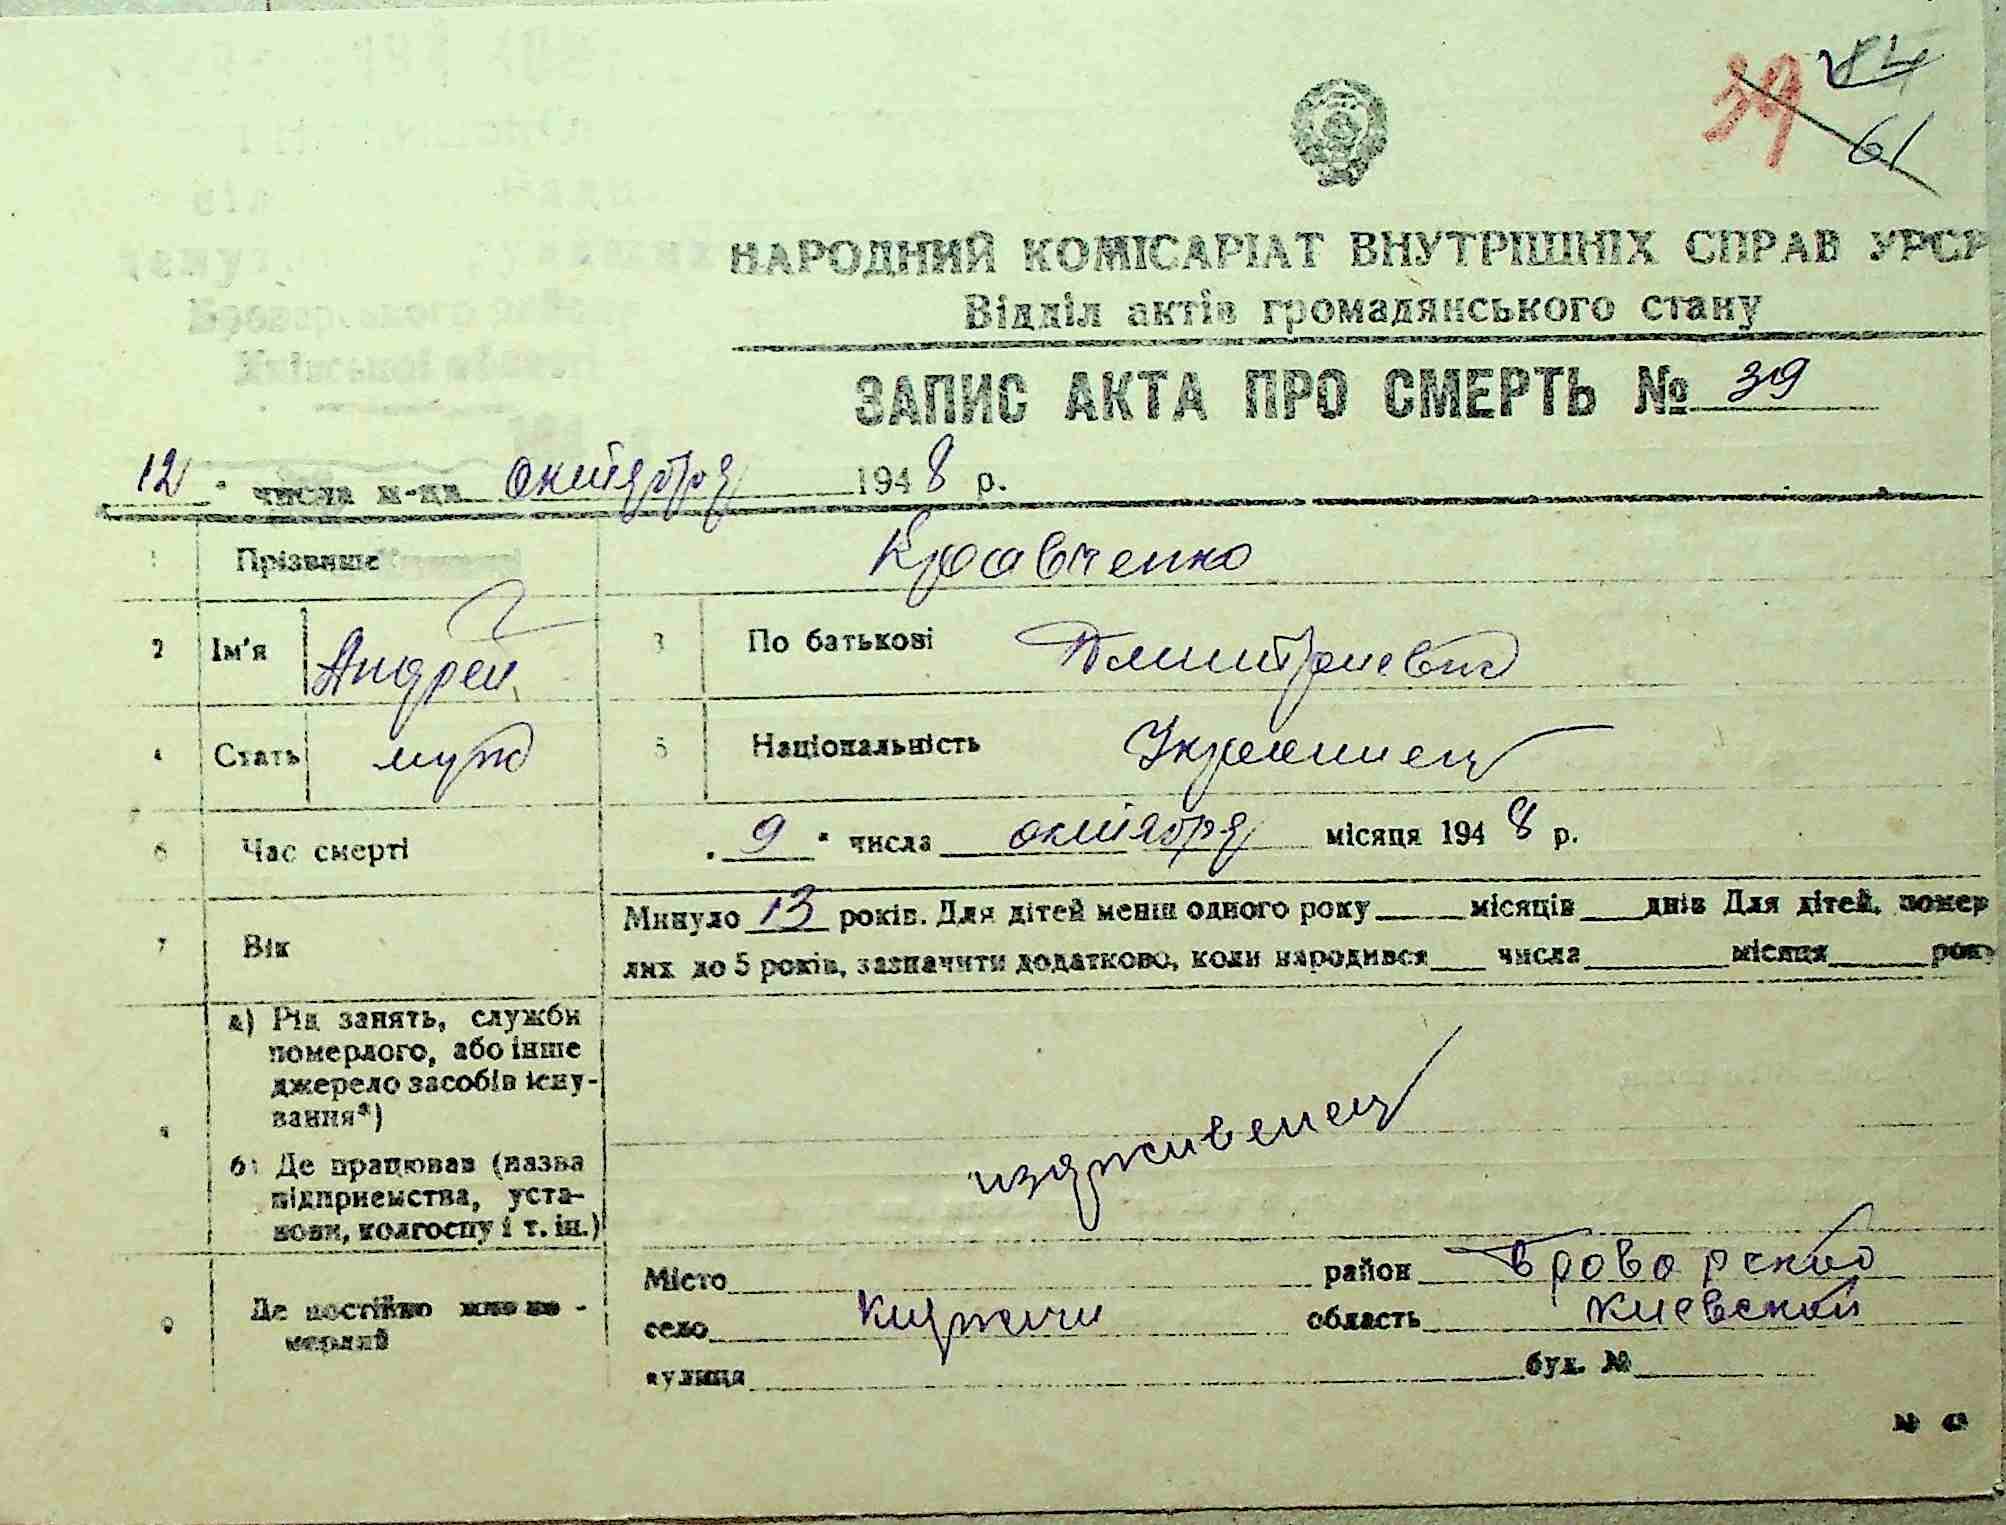 39 84
61
НАРОДНИЙ КОМІСАРІАТ ВНУТРІШНІХ СПРАВ УРСР
Відділ актів громадянського стану
ЗАПИС АКТА ПРО СМЕРТЬ № 39
12 " числа м-ца октября 1948 р.
1 Прізвище Кравченко
2 Ім'я Андрей 3 По батькові Дмитриевич
4 Стать муж 5 Національність Украинец
6 Час смерті „ 9 " числа октября місяця 1948 р.
Минуло 13 років. Для дітей менш одного року місяців днів Для дітей, помер
7 Вік
лих до 5 років, зазначити додатково, коли народився числа місяця року
а) Рід занять, служби
померлого, або інше
джерело засобів існу-
вання*)
иждивенец
б) Де працював (назва
підприємства, уста-
нови, колгоспу і т. ін.)
Місто район Броварской
9 Де постійно жив по-
мерлий
село Княжичи область Киевской
вулиця буд. №